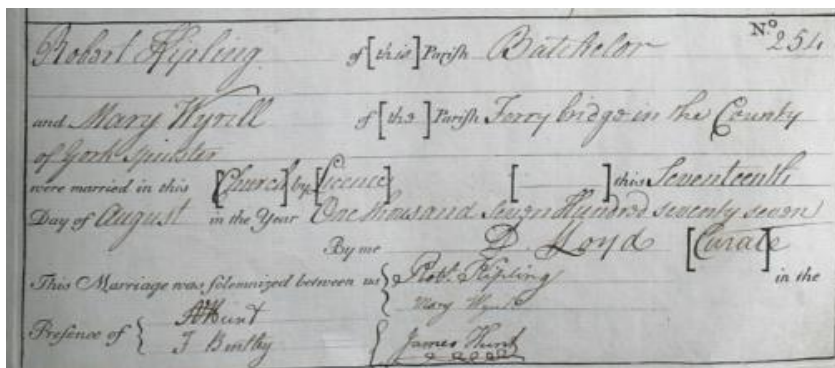 Robert Kipling of [this] Parish Batchelor No. 254
and Mary Wyrill of [the] Parish Ferry bridge in the County
of York Spinster
were married in this [Church] by [Licence] [ ] this Seventeenth
Day of August in the Year One thousand Seven Hundred seventy seven
By me D. Lloyd [Curate]
This Marriage was solemnized between us } Robt. Kipling in the
Mary Wyrill
Presence of { Hunt
J Bentley { James Hunt